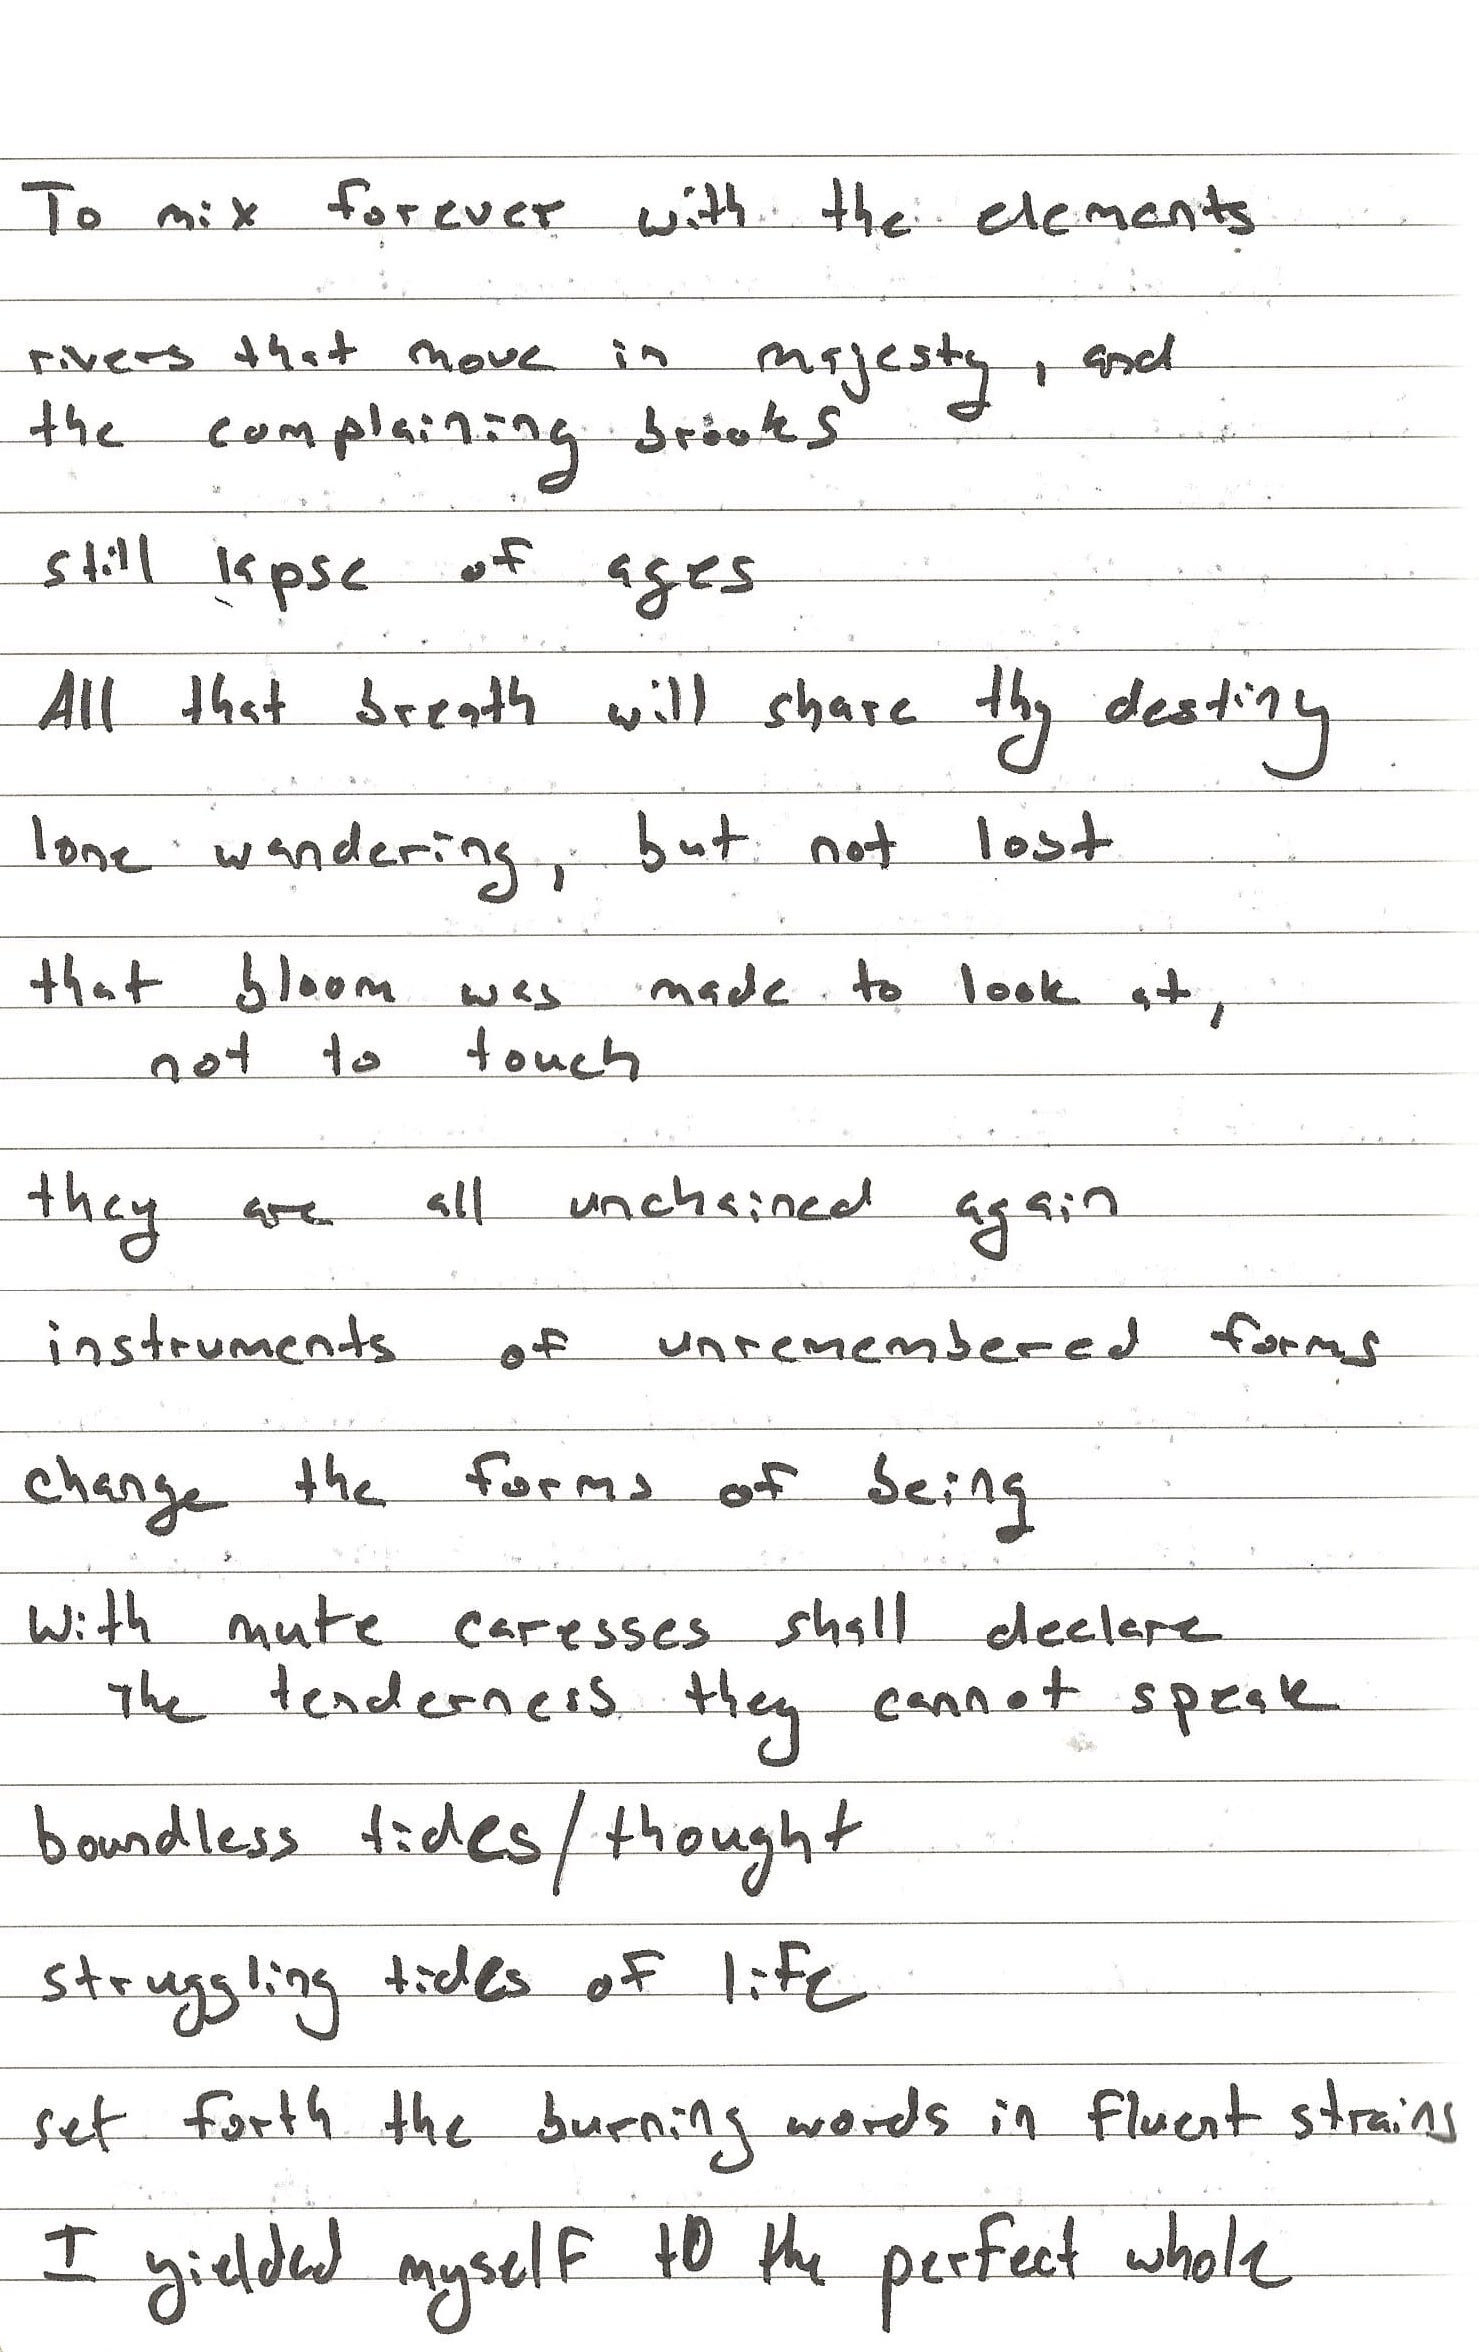 To mix forever with the elements
rivers that move in majesty, and
the complaining brooks
still lapse of ages
All that breath will share thy destiny
lone wandering, but not lost
that bloom was made to look at,
not to touch
they are all unchained again
instruments of unremembered forms
change the forms of being
With mute caresses shall declare
The tenderness they cannot speak
boundless tides/thought
struggling tides of life
set forth the burning words in fluent strains
I yielded myself to the perfect whole